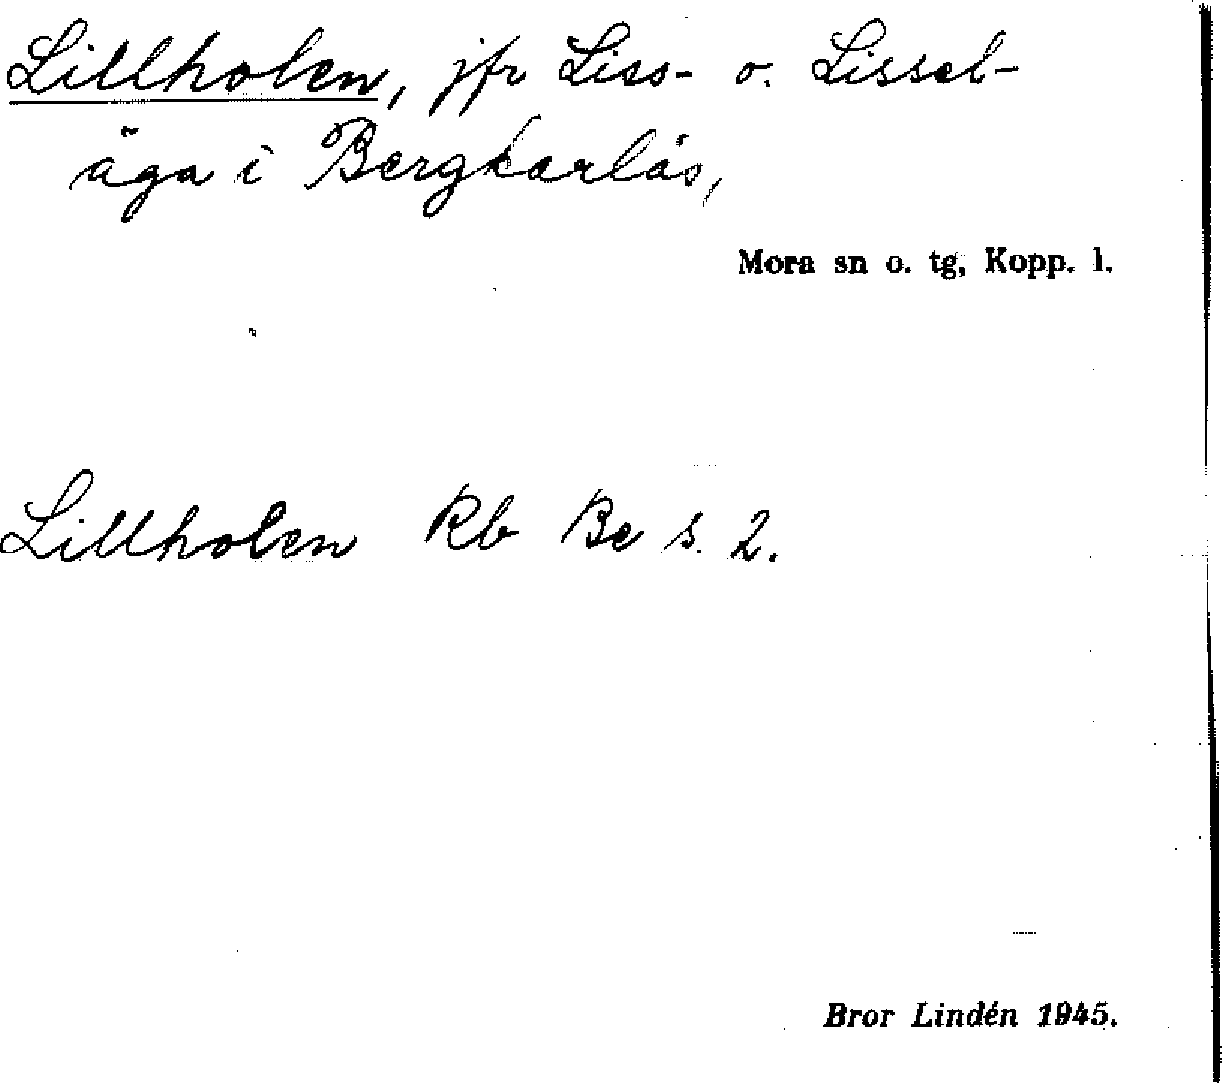 Lillholen, jfr Liss- o. Lissel-
äga i Bergkarlås,
Mora sn o. tg, Kopp. l.
Lillholen Rb Be s. 2.
Bror Lindén 1945.